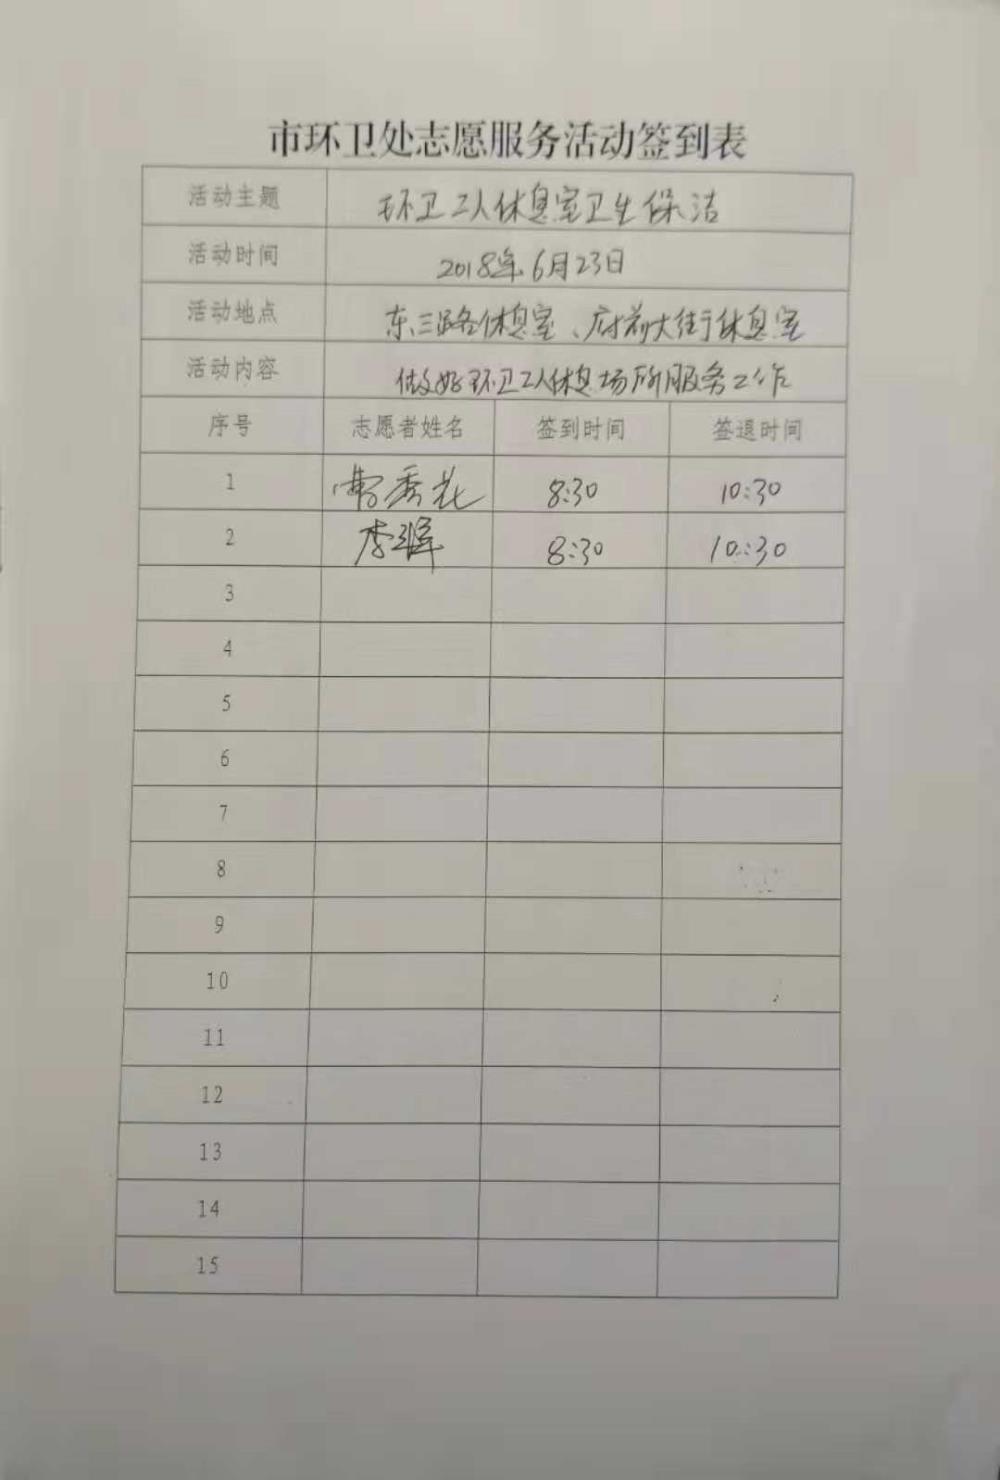 市环卫处志愿服务活动签到表
活动主题 环卫工人休息室卫生保洁
活动时间 2018年6月23日
活动地点 东三路休息室、府前大街休息室
活动内容 做好环卫工人休息场所服务工作
序号 志愿者姓名 签到时间 签退时间
1 曹秀花 8:30 10:30
2 李 8:30 10:30
3
4
5
6
7
8
9
10
11
12
13
14
15